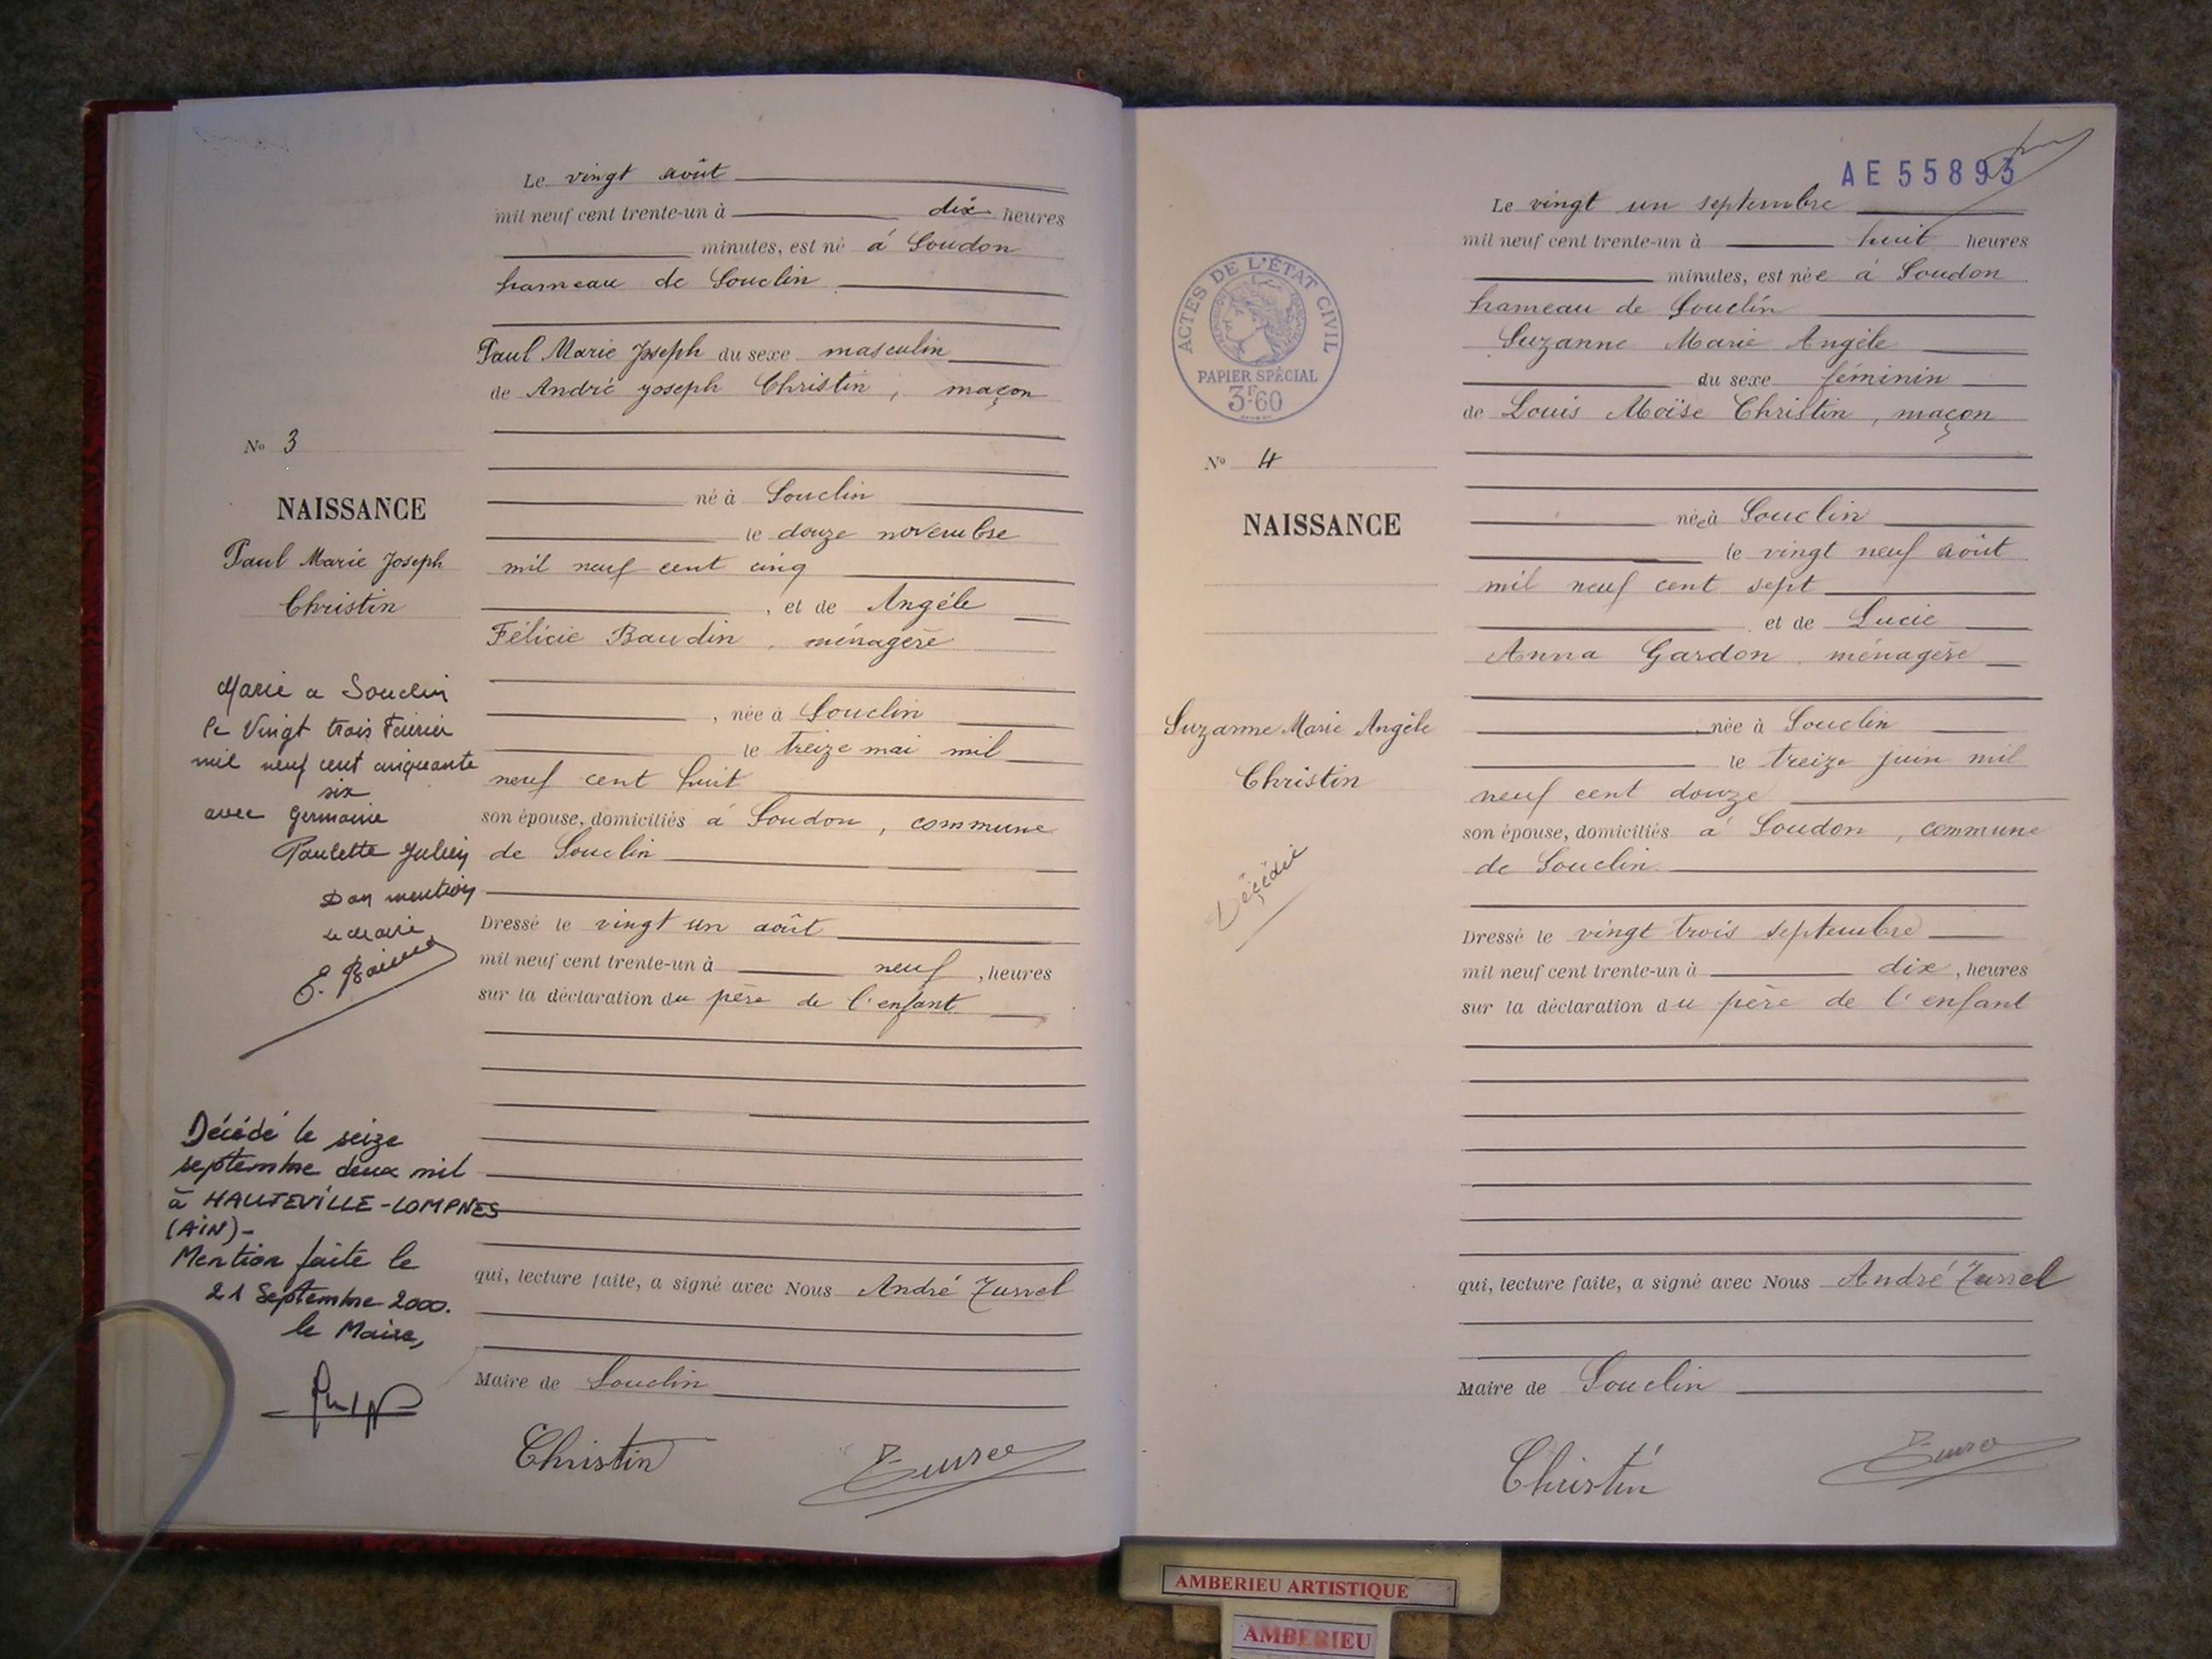 Le vingt août
mil neuf cent trente-un à dix heures
minutes, est né à Soudon
hameau de Souclin
Paul Marie Joseph du sexe masculin
de André Joseph Christin, maçon
né à Souclin
le douze novembre
mil neuf cent cinq
, et de Angèle
Félicie Baudin, ménagère
, née à Souclin
le treize mai mil
neuf cent huit
son épouse, domiciliés à Soudon, commune
de Souclin
Dressé le vingt un août
mil neuf cent trente-un à neuf, heures
sur la déclaration du père de l'enfant
qui, lecture faite, a signé avec Nous André
Maire de Souclin
Christin
No 3
NAISSANCE
Paul Marie Joseph
Christin
Marié a Souclin
le Vingt trois Février
mil neuf cent cinquante
six
avec Germaine
Paulette
Don mention
le Maire
E.
Décédé le seize
septembre deux mil
à HAUTEVILLE-LOMPNES
(AIN)-
Mention faite le
21 Septembre 2000.
le Maire,
AE 55893
ACTES DE L'ÉTAT CIVIL
PAPIER SPÉCIAL
3F60
No 4
NAISSANCE
Suzanne Marie Angèle
Christin
Décédée
Le vingt un septembre
mil neuf cent trente-un à huit heures
minutes, est née à Soudon
hameau de Souclin
Suzanne Marie Angèle
du sexe féminin
de Louis Moïse Christin, maçon
née à Souclin
le vingt neuf août
mil neuf cent sept
et de Lucie
Anna Gardon, ménagère
, née à Souclin
le treize juin mil
neuf cent douze
son épouse, domiciliés à Soudon, commune
de Souclin
Dressé le vingt trois septembre
mil neuf cent trente-un à dix, heures
sur la déclaration du père de l'enfant
qui, lecture faite, a signé avec Nous André
Maire de Souclin
Christin
AMBERIEU ARTISTIQUE
AMBERIEU